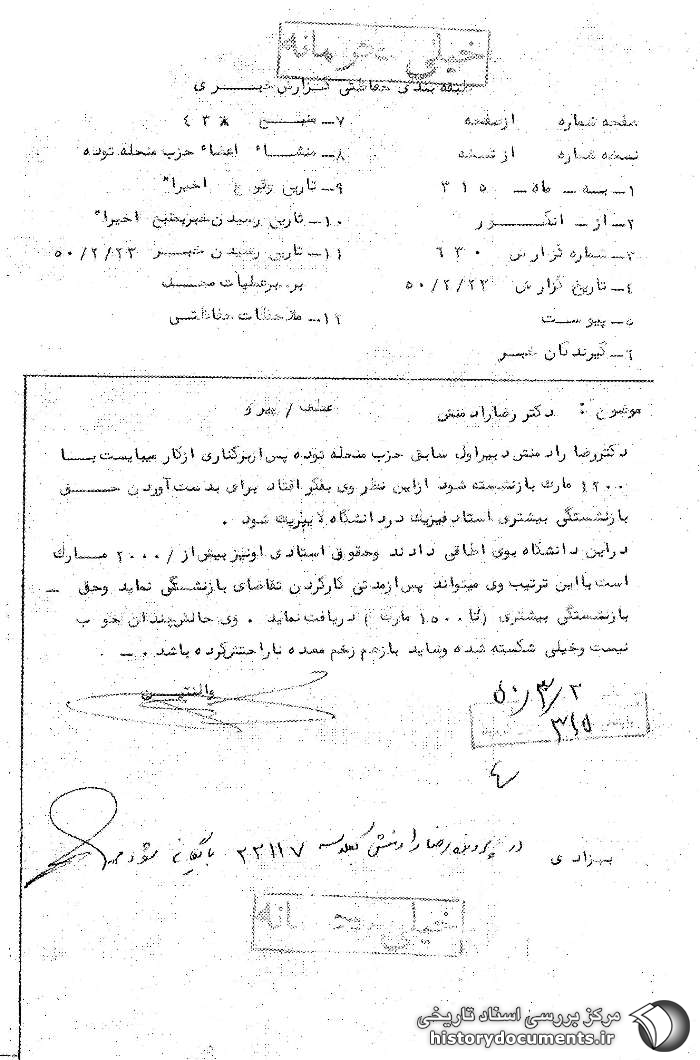 خیلی محرمانه
طبقه بندی حفاظتی گزارش خبری
صفحه شماره از صفحه
نسخه شماره از نسخه
۱ـ به ـ ماه ـ ۳۱۵
۲ـ از ـ انگور
۳ـ شماره گزارش ۶۳۰
۴ـ تاریخ گزارش ۵۰/۲/۲۳
۵ـ پیوست
۶ـ گیرندگان خبر
۷ـ منبع ۴۳*
۸ـ منشاء اعضاء حزب منحله توده
۹ـ تاریخ وقوع اخیرا"
۱۰ـ تاریخ رسیدن خبر بمنبع اخیرا"
۱۱ـ تاریخ رسیدن خبر ۵۰/۲/۲۳
بر هبر عملیات محمد
۱۲ـ ملاحظات حفاظتی
موضوع : دکتر رضا رادمنش عطف / پیرو
دکتر رضا رادمنش دبیر اول سابق حزب منحله توده پس از برکناری از کار میبایست با
۱۲۰۰ مارک بازنشسته شود از این نظر وی بفکر افتاد برای بدست آوردن حق
بازنشستگی بیشتری استاد فیزیک در دانشگاه لایپزیک شود .
در این دانشگاه بوی اطاقی دادند وحقوق استادی اونیز بیش از /۲۰۰۰ مارک
است با این ترتیب وی میتواند پس از مدتی کار کردن تقاضای بازنشستگی نماید وحق ـ
بازنشستگی بیشتری (تا ۱۵۰۰ مارک ) دریافت نماید . وی حالش چندان خوب
نیست وخیلی شکسته شده وشاید بازهم زخم معده ناراحتش کرده باشد . ـ
والنتین
۵۰/۳/۲
۳۱۵
۴
بهزادی در پرونده رضا رادمنش بکلاسه ۲۲۱۱۷ بایگانی شود
خیلی محرمانه
مرکز بررسی اسناد تاریخی
historydocuments.ir